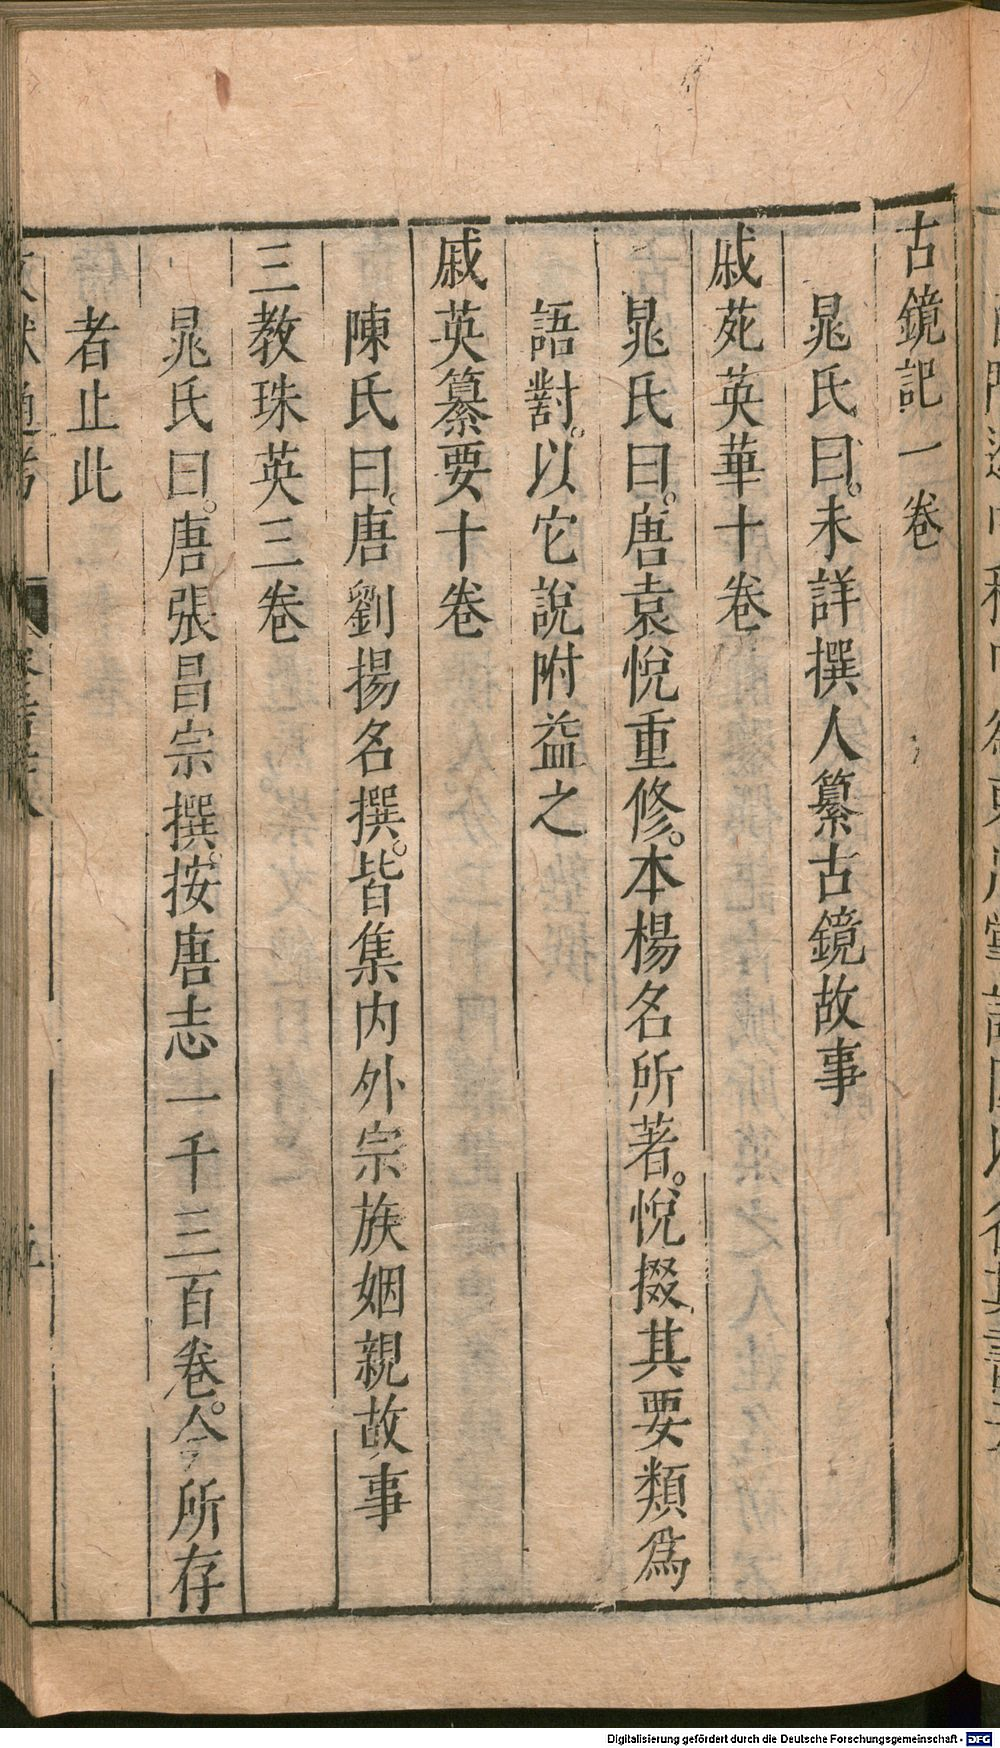 古鏡記一卷
晁氏曰。未詳撰人纂古鏡故事
戚苑英華十卷
晁氏曰。唐袁悅重修。本楊名所著。悅掇其要類爲
語對。以它說附益之
戚英纂要十卷
陳氏曰。唐劉揚名撰。皆集內外宗族姻親故事
三教珠英三卷
晁氏曰。唐張昌宗撰。按唐志一千三百卷。今所存
者止此
文獻通考
Digitalisierung gefördert durch die Deutsche Forschungsgemeinschaft - DFG